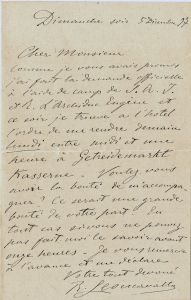 Dimanche soir 5 Décembre 97
Cher Monsieur
Comme je vous avais promis
j'ai fait la demande officielle
à l'aide de camp de S. A. I.
et R. l'Archiduc Eugène et
ce soir je trouve à l'hôtel
l'ordre de me rendre demain
lundi entre midi et une
heure à Getreidemarkt
Kasserne. Voulez vous
avoir la bonté de m'accompa
gner? Ce serait une grande
bonté de votre part. En
tout cas si vous ne pouvez
pas fait moi le savoir avant
onze heures. Je vous remercie
à l'avance et me déclare
Votre tout dévoué
R. Leoncavallo